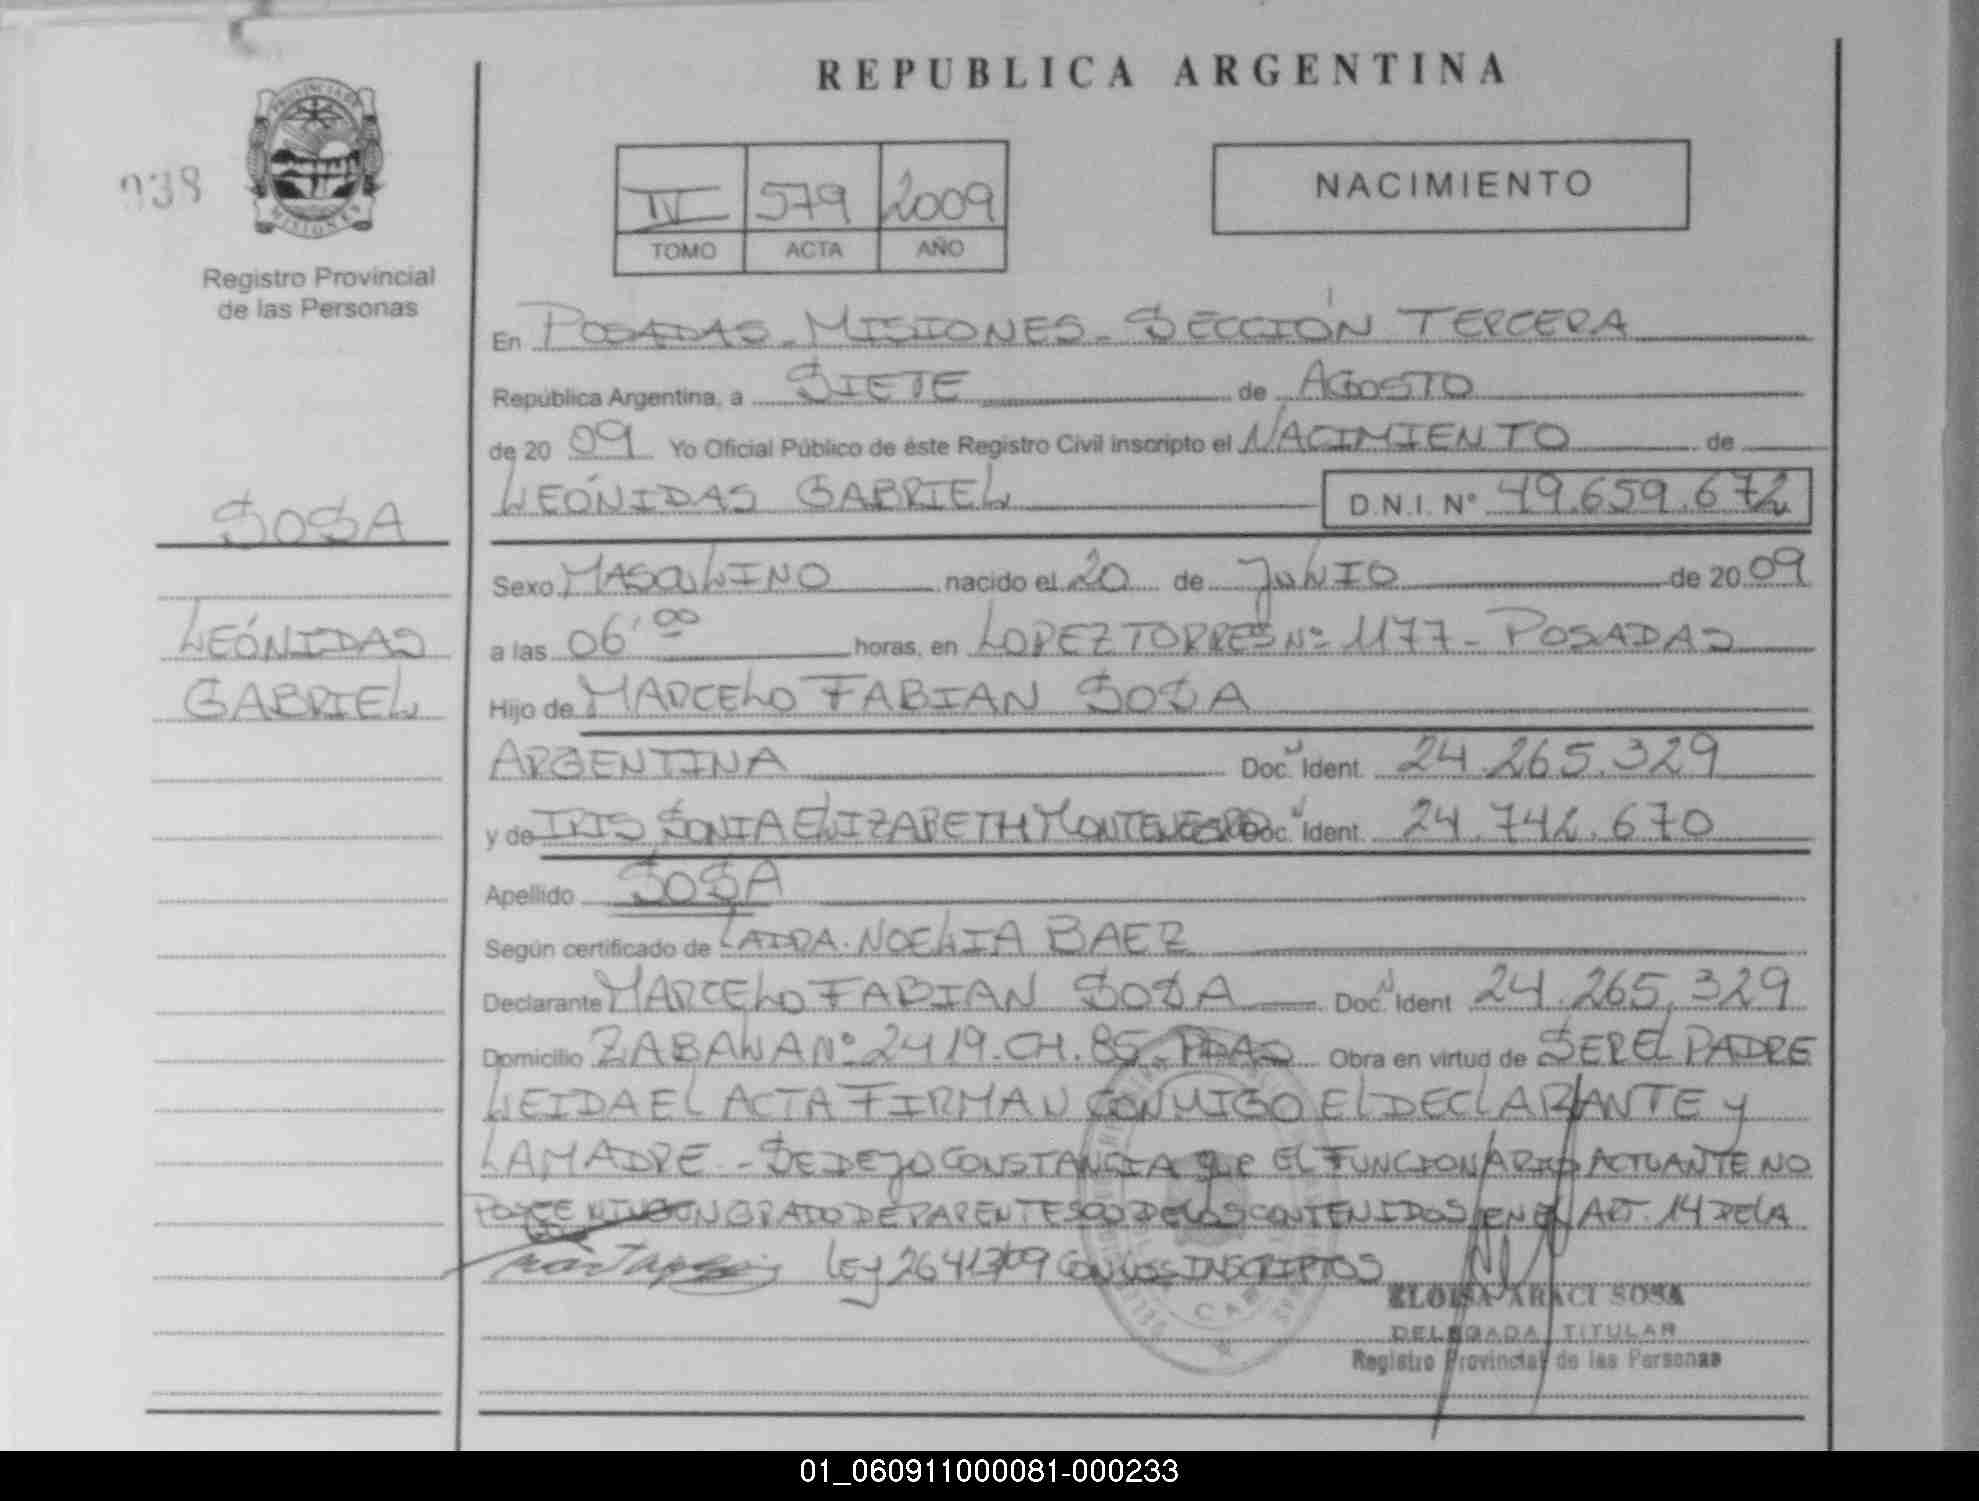 REPUBLICA ARGENTINA
PROVINCIA DE
MISIONES
038
Registro Provincial
de las Personas
IV 579 2009
TOMO ACTA AÑO
NACIMIENTO
En POSADAS - MISIONES - SECCIÓN TERCERA
República Argentina, a SIETE de AGOSTO
de 20 09 Yo Oficial Público de éste Registro Civil inscripto el NACIMIENTO de
LEÓNIDAS GABRIEL D.N.I. N° 49.659.672
SOSA
LEÓNIDAS
GABRIEL
Sexo MASCULINO nacido el 20 de JULIO de 20 09
a las 06'00 horas, en LOPEZ TORRES Nº 1177 - POSADAS
Hijo de MARCELO FABIAN SOSA
ARGENTINA Doc. Ident. 24.265.329
y de IRIS SONIA ELIZABETH MONTENEGRO Doc. Ident. 24.742.670
Apellido SOSA
Según certificado de LA DRA. NOELIA BAEZ
Declarante MARCELO FABIAN SOSA Doc. Ident 24.265.329
Domicilio ZABALA Nº 2419. CH. 85. PDAS Obra en virtud de SER EL PADRE
LEIDA EL ACTA FIRMAN CONMIGO EL DECLARANTE Y
LA MADRE - SE DEJO CONSTANCIA QUE EL FUNCIONARIO ACTUANTE NO
POSEE NINGUN GRADO DE PARENTESCO DE LOS CONTENIDOS EN EL ART. 14 DE LA
LEY 26413/09 CON LOS INSCRIPTOS
ELOISA ARACI SOSA
DELEGADA TITULAR
Registro Provincial de las Personas
01_060911000081-000233